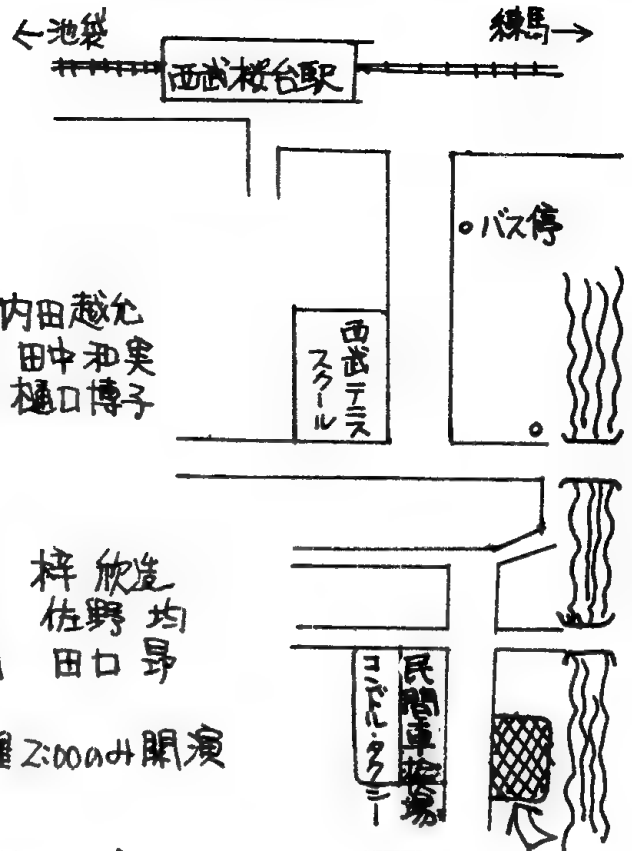 ←池袋
練馬→
西武桜台駅
バス停
内田越允
田中和実
樋口博子
西武テニス
スクール
梓 欣造
佐野 均
田口 昴
2:00のみ開演
民間車輪場
コンドル・タクシー